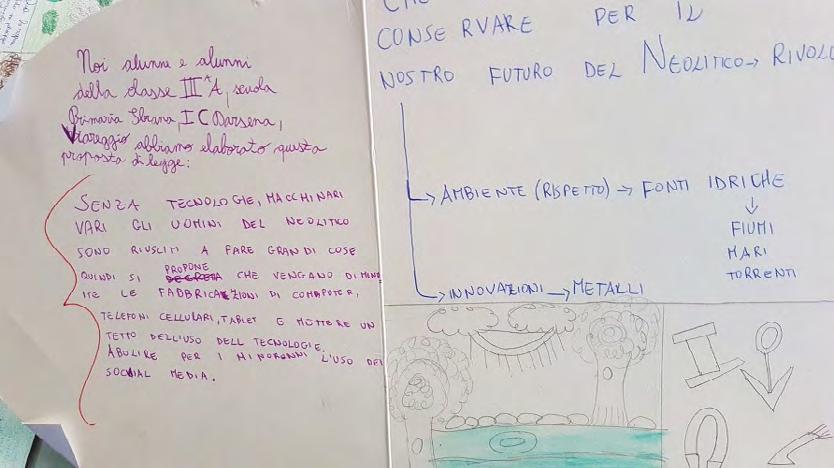 Noi alunne e alunni
della classe III^A A, scuola
Primaria Sbrana, I C Darsena,
Viareggio abbiamo elaborato questa
proposta di legge:
SENZA TECNOLOGIE, MACCHINARI
VARI GLI UOMINI DEL NEOLITICO
SONO RIUSCITI A FARE GRANDI COSE
QUINDI SI PROPONE CHE VENGANO DIMINU
ITE LE FABBRICAZIONI DI COMPUTER,
TELEFONI CELLULARI, TABLET E METTERE UN
TETTO DELL'USO DELL TECNOLOGIE.
ABOLIRE PER I MINORENNI L'USO DEI
SOCIAL MEDIA.
CHE
CONSERVARE PER IL
NOSTRO FUTURO DEL NEOLITICO → RIVOLU
→ AMBIENTE (RISPETTO) → FONTI IDRICHE
↓
FIUMI
MARI
TORRENTI
→ INNOVAZIONI → METALLI